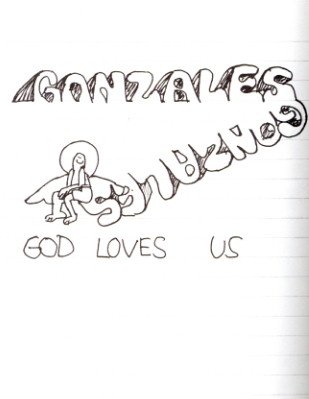 GONZALES
GONZALES
GOD LOVES US